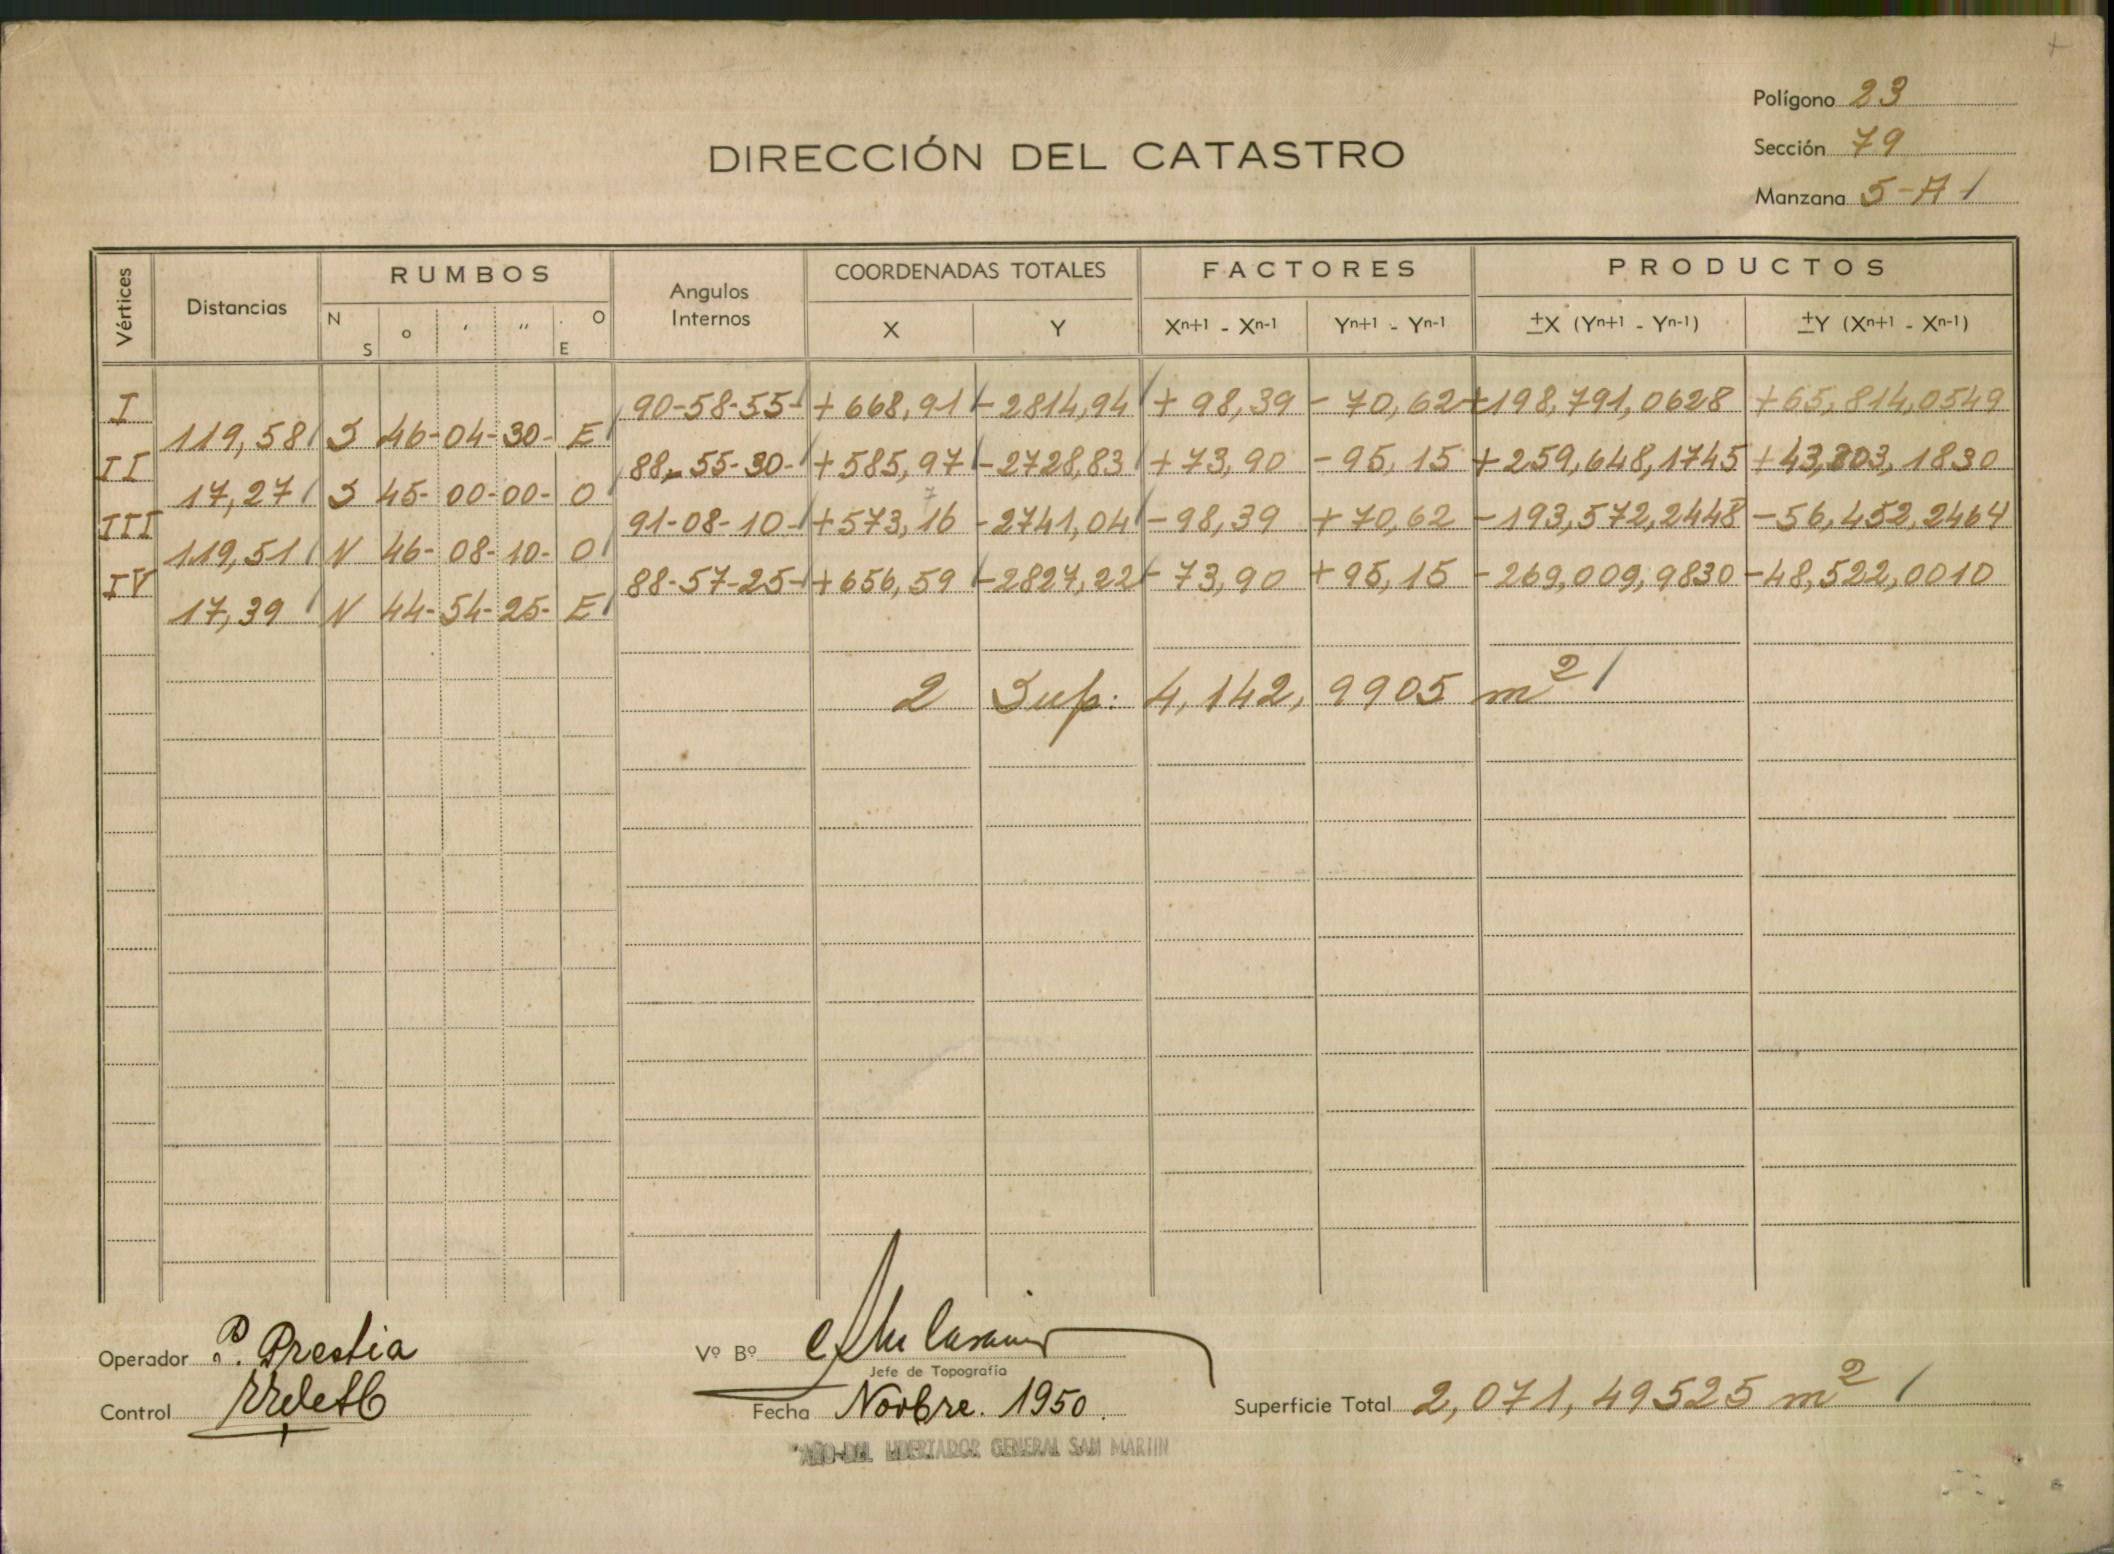 Polígono 23
DIRECCIÓN DEL CATASTRO
Sección 79
Manzana 5-A /
Vértices Distancias RUMBOS Angulos Internos COORDENADAS TOTALES FACTORES PRODUCTOS
N S o ‘ “ O E X Y Xn+1 - Xn-1 Yn+1 - Yn-1 ±X (Yn+1 - Yn-1) ±Y (Xn+1 - Xn-1)
I 90-58-55- +668,91 -2814,94 +98,39 -70,62 +198,791,0628 +65,814,0549
119,58 S 46-04-30- E
II 88-55-30- +585,97 -2728,83 +73,90 -95,15 +259,648,1745 +43,303,1830
17,27 S 45-00-00- O
III 91-08-10- +573,76 -2741,04 -98,39 +70,62 -193,572,2448 -56,452,2464
119,51 N 46-08-10- O
IV 88-57-25- +656,59 -2827,22 -73,90 +95,15 -269,009,9830 -48,522,0010
17,39 N 44-54-25- E
2 Sup: 4,142,9905 m² /
Operador P. Prestia
Vº Bº
Jefe de Topografía
Control
Fecha Novbre. 1950.
Superficie Total 2,071,49525 m² /
"AÑO DEL LIBERTADOR GENERAL SAN MARTIN